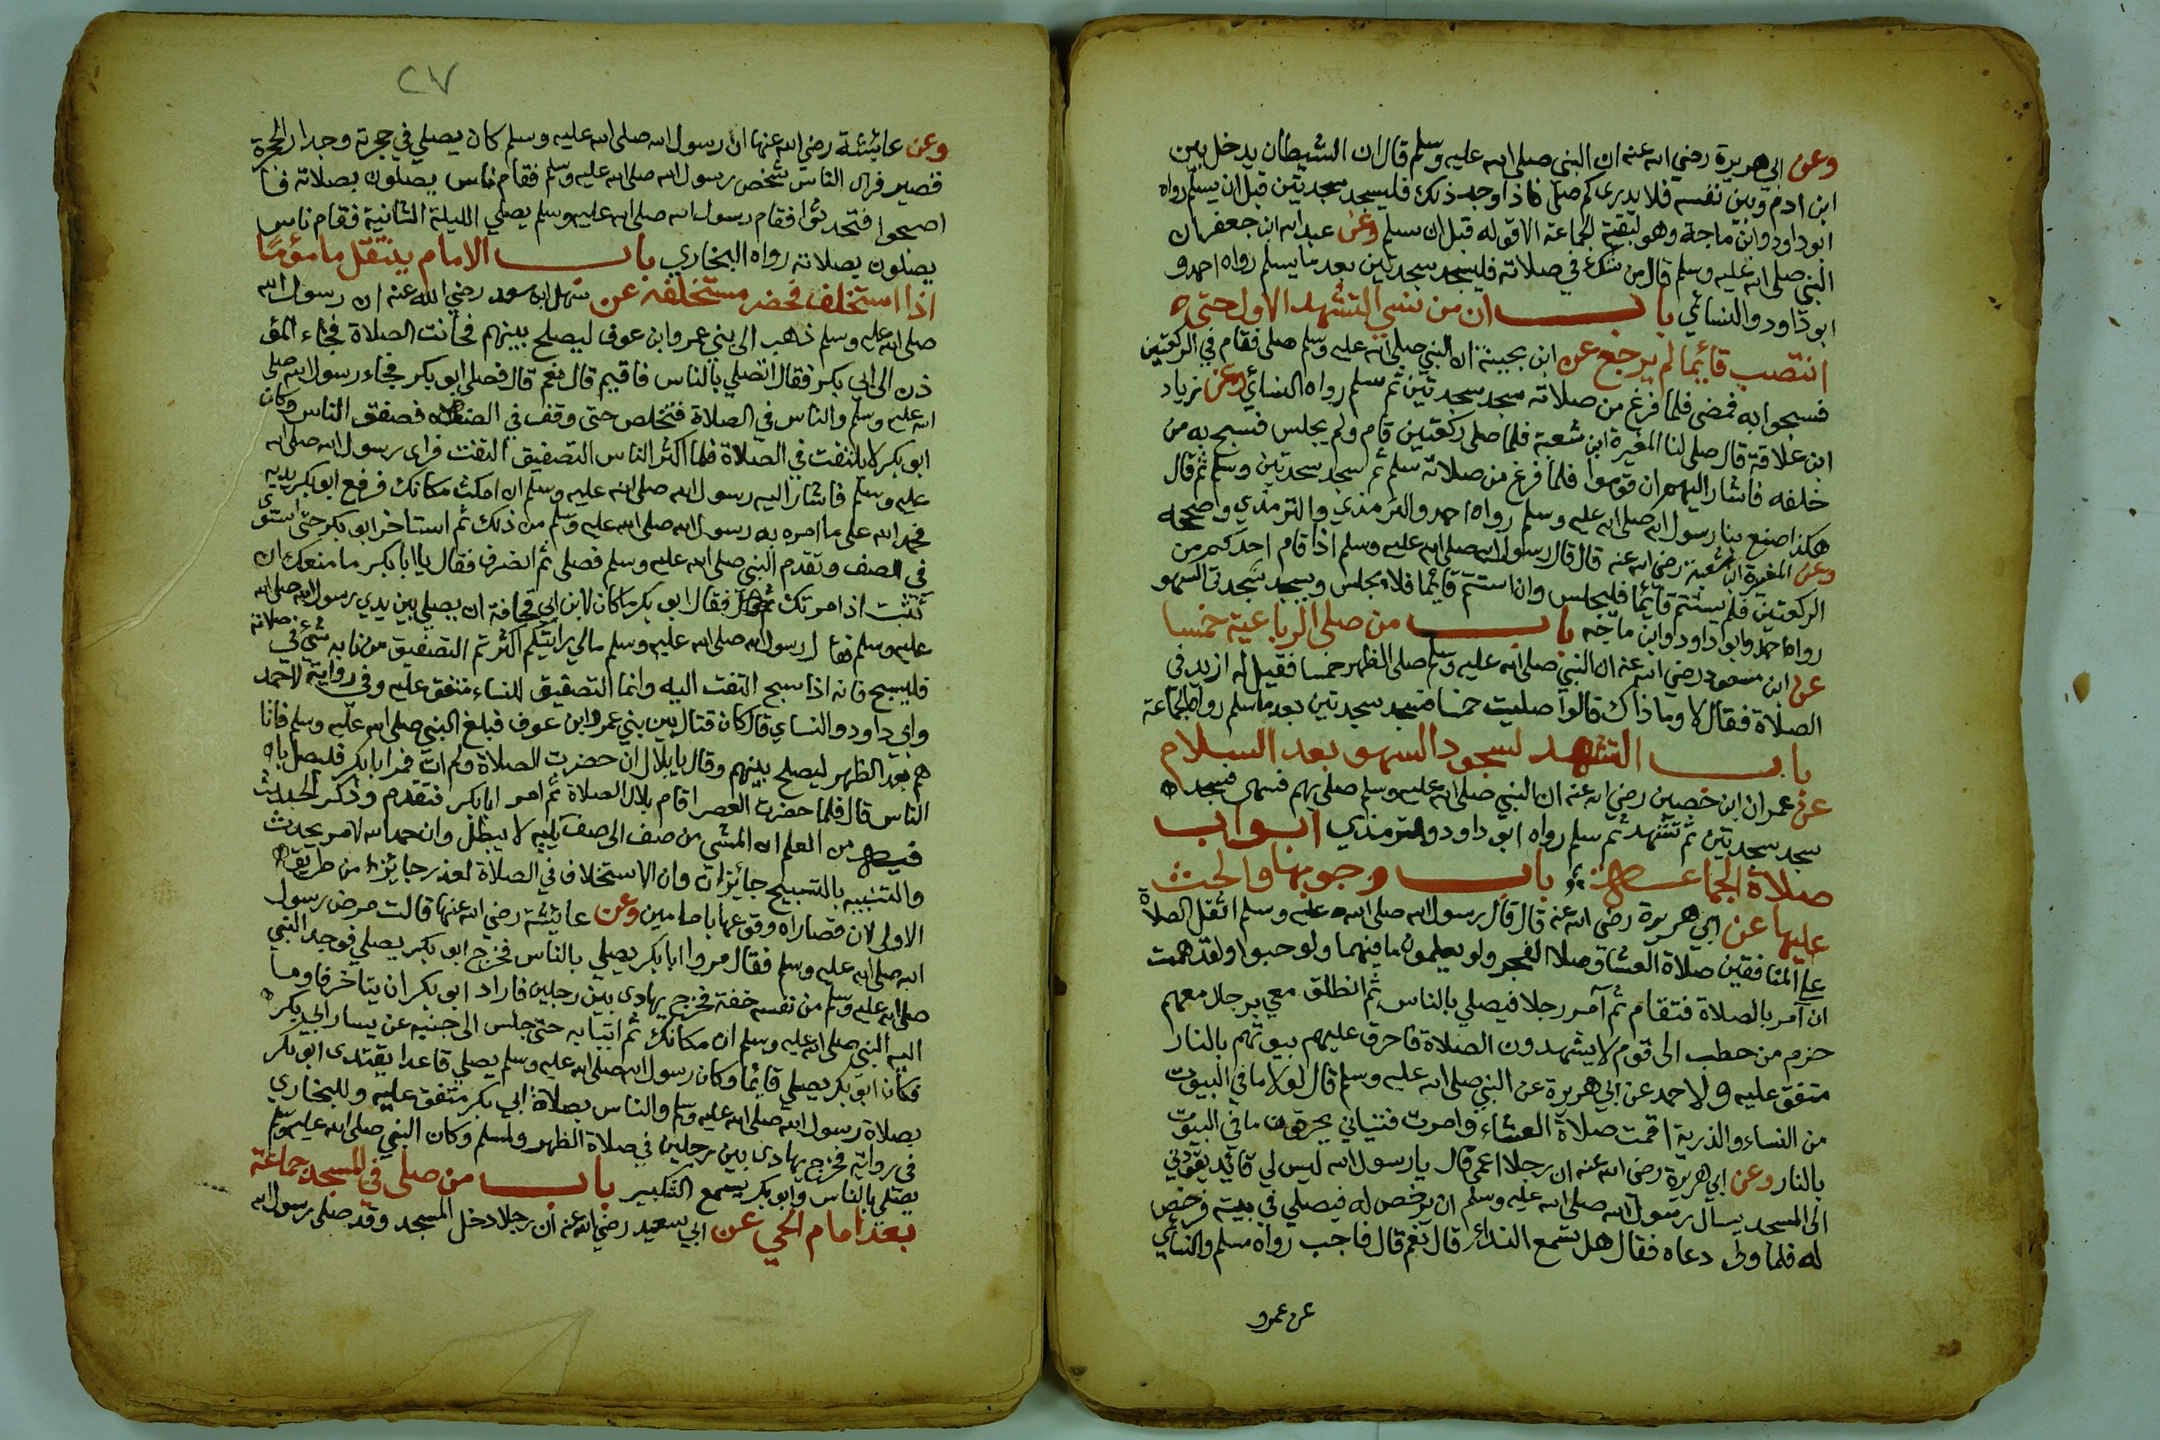 وعن ابي هريرة رضي الله عنه ان النبي صلى الله عليه وسلم قال ان الشيطان يدخل بين
ابن ادم وبين نفسه فلا يدري كم صلى فاذا وجد ذلك فليسجد سجدتين قبل ان يسلم رواه
ابو داود وابن ماجة وهو لبقية الجماعة الا قوله قبل ان يسلم وعن عبد الله ابن جعفر ان
النبي صلى الله عليه وسلم قال من شك في صلاته فليسجد سجدتين بعد ما يسلم رواه احمد و
ابو داود والنسائي باب ان من نسي التشهد الاول حتى
انتصب قايما لم يرجع عن ابن بحينة ان النبي صلى الله عليه وسلم صلى فقام في الركعتين
فسبحوا به فمضى فلما فرغ من صلاته سجد سجدتين ثم سلم رواه النسائي وعن زياد
ابن علاقة قال صلى لنا المغيرة ابن شعبة فلما صلى ركعتين قام ولم يجلس فسبح به من
خلفه فاشار اليهم ان قوموا فلما فرغ من صلاته سلم ثم سجد سجدتين وسلم ثم قال
هكذا صنع بنا رسول الله صلى الله عليه وسلم رواه احمد والترمذي والترمذي وصححه
وعن المغيرة ابن شعبة رضي الله عنه قال قال رسول الله صلى الله عليه وسلم اذا قام احدكم من
الركعتين فلم يستتم قايما فليجلس وان استتم قايما فلا يجلس ويسجد سجدتي السهو
رواه احمد وابو داود وابن ماجه باب من صلى الرباعية خمسا
عن ابن مسعود رضي الله عنه ان النبي صلى الله عليه وسلم صلى الظهر خمسا فقيل له ازيد في
الصلاة فقال لا وما ذاك قالوا صليت خمسا فسجد سجدتين بعد ما سلم رواه الجماعة
باب التشهد لسجود السهو بعد السلام
عن عمران ابن حصين رضي الله عنه ان النبي صلى الله عليه وسلم صلى بهم فسهى فسجد
سجد سجدتين ثم تشهد ثم سلم رواه ابو داود والترمذي ابواب
صلاة الجماعة باب وجوبها والحث
عليها عن ابي هريرة رضي الله عنه قال قال رسول الله صلى الله عليه وسلم اثقل الصلاة
على المنافقين صلاة العشا وصلاة الفجر ولو يعلمون ما فيهما ولو حبوا ولقد هممت
ان آمر بالصلاة فتقام ثم آمر رجلا فيصلي بالناس ثم انطلق معي برجال معهم
حزم من حطب الى قوم لا يشهدون الصلاة فاحرق عليهم بيوتهم بالنار
متفق عليه ولاحمد عن ابي هريرة عن النبي صلى الله عليه وسلم قال لولا ما في البيوت
من النساء والذرية اقمت صلاة العشاء وامرت فتياني يحرقون ما في البيوت
بالنار وعن ابي هريرة رضي الله عنه ان رجلا اعمى قال يا رسول الله ليس لي قائد يقودني
الى المسجد يسال رسول الله صلى الله عليه وسلم ان يرخص له فيصلي في بيته فرخص
له فلما ولى دعاه فقال هل تسمع النداء قال نعم قال فاجب رواه مسلم والنسائي
عن عمرو
٢٧
وعن عائشة رضي الله عنها ان رسول الله صلى الله عليه وسلم كان يصلي في حجرته وجدار الحجرة
قصير فراى الناس شخص رسول الله صلى الله عليه وسلم فقام ناس يصلون بصلاته فا
اصبحوا فتحدثوا فقام رسول الله صلى الله عليه وسلم يصلي الليلة الثانية فقام ناس
يصلون بصلاته رواه البخاري باب الامام ينتقل ماموما
اذا استخلف فحضر مستخلفه عن سهل ابن سعد رضي الله عنه ان رسول الله
صلى الله عليه وسلم ذهب الى بني عمرو ابن عوف ليصلح بينهم فحانت الصلاة فجاء المؤ
ذن الى ابي بكر فقال اتصلي بالناس فاقيم قال نعم قال فصلى ابو بكر فجاء رسول الله صلى
الله عليه وسلم والناس في الصلاة فتخلص حتى وقف في الصف فصفق الناس وكان
ابو بكر لا يلتفت في الصلاة فلما اكثر الناس التصفيق التفت فراى رسول الله صلى الله
عليه وسلم فاشار اليه رسول الله صلى الله عليه وسلم ان امكث مكانك فرفع ابو بكر يديه
فحمد الله على ما امره به رسول الله صلى الله عليه وسلم من ذلك ثم استاخر ابو بكر حتى استوى
في الصف وتقدم النبي صلى الله عليه وسلم فصلى ثم انصرف فقال يا ابا بكر ما منعك ان
تثبت اذ امرتك فقال ابو بكر ما كان لابن ابي قحافة ان يصلي بين يدي رسول الله صلى الله
عليه وسلم فقال رسول الله صلى الله عليه وسلم مالي رايتكم اكثرتم التصفيق من نابه شيء في صلاته
فليسبح فانه اذا سبح التفت اليه وانما التصفيق للنساء متفق عليه وفي رواية لاحمد
وابي داود والنساي قال كان قتال بين بني عمرو ابن عوف فبلغ النبي صلى الله عليه وسلم فاتا
هم بعد الظهر ليصلح بينهم وقال يا بلال ان حضرت الصلاة ولم ات فمر ابا بكر فليصل با
الناس قال فلما حضرت العصر اقام بلال الصلاة ثم امر ابا بكر فتقدم وذكر الحديث
فيه من العلم ان المشي من صف الى صف يليه لا يبطل وان حمد الله لامر يحدث
والتنبيه بالتسبيح جائزان وان الاستخلاف في الصلاة لعذر جائز من طريق
الاولى لان قصاراه وقوعها بامامين وعن عائشة رضي الله عنها قالت مرض رسول
الله صلى الله عليه وسلم فقال مروا ابا بكر يصلي بالناس فخرج ابو بكر يصلي فوجد النبي
صلى الله عليه وسلم من نفسه خفة فخرج يهادى بين رجلين فاراد ابو بكر ان يتاخر فاوما
اليه النبي صلى الله عليه وسلم ان مكانك ثم اتيا به حتى جلس الى جنبه عن يسار ابي بكر
فكان ابو بكر يصلي قائما وكان رسول الله صلى الله عليه وسلم يصلي قاعدا يقتدي ابو بكر
بصلاة رسول الله صلى الله عليه وسلم والناس بصلاة ابي بكر متفق عليه وللبخاري
في رواية فخرج يهادى بين رجلين في صلاة الظهر ولمسلم وكان النبي صلى الله عليه وسلم
يصلي بالناس وابو بكر يسمع التكبير باب من صلى في المسجد جماعة
بعد امام الحي عن ابي سعيد رضي الله عنه ان رجلا دخل المسجد وقد صلى رسول الله